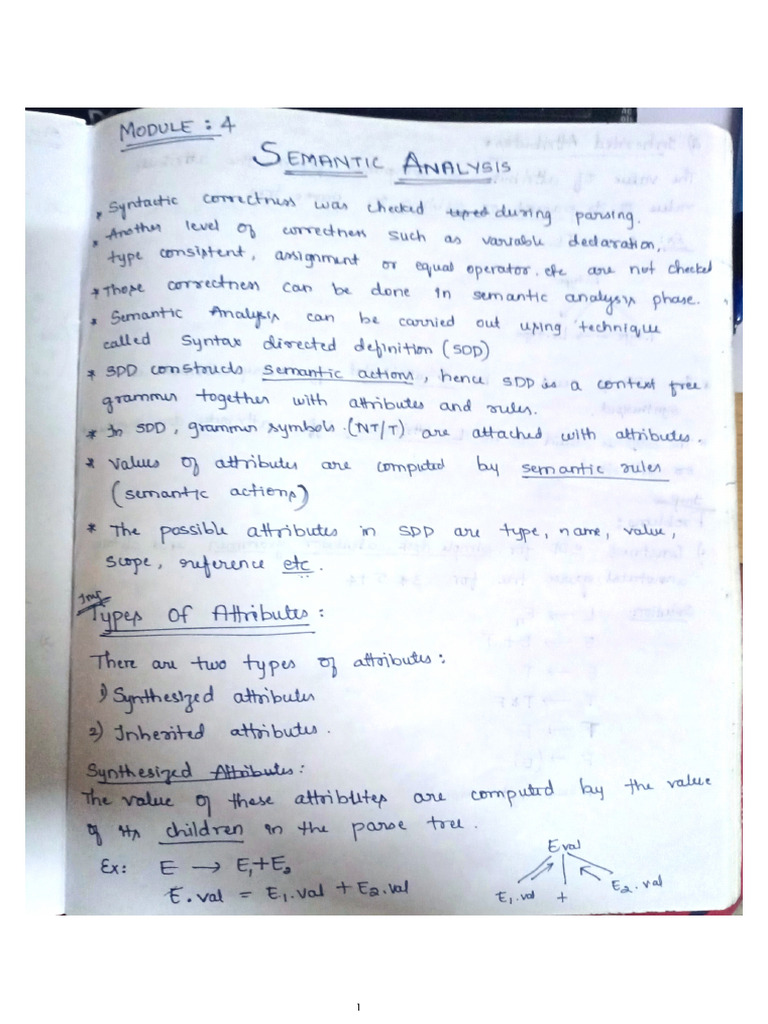 MODULE : 4
SEMANTIC ANALYSIS
* Syntactic correctness was checked during parsing.
* Another level of correctness such as variable declaration,
type consistent, assignment or equal operator, etc are not checked
* Those correctness can be done in semantic analysis phase.
* Semantic Analysis can be carried out using technique
called Syntax directed definition (SDD)
* SDD constructs semantic actions, hence SDD is a context free
grammar together with attributes and rules.
* In SDD, grammar symbols (NT/T) are attached with attributes.
* Values of attributes are computed by semantic rules
(semantic actions)
* The possible attributes in SDD are type, name, value,
scope, reference etc.
Imp
Types Of Attributes :
There are two types of attributes :
1) Synthesized attributes
2) Inherited attributes.
Synthesized Attributes :
The value of these attributes are computed by the value
of its children in the parse tree.
Ex: E → E1+E2
E.val = E1.val + E2.val
E val
E1.val + E2.val
1